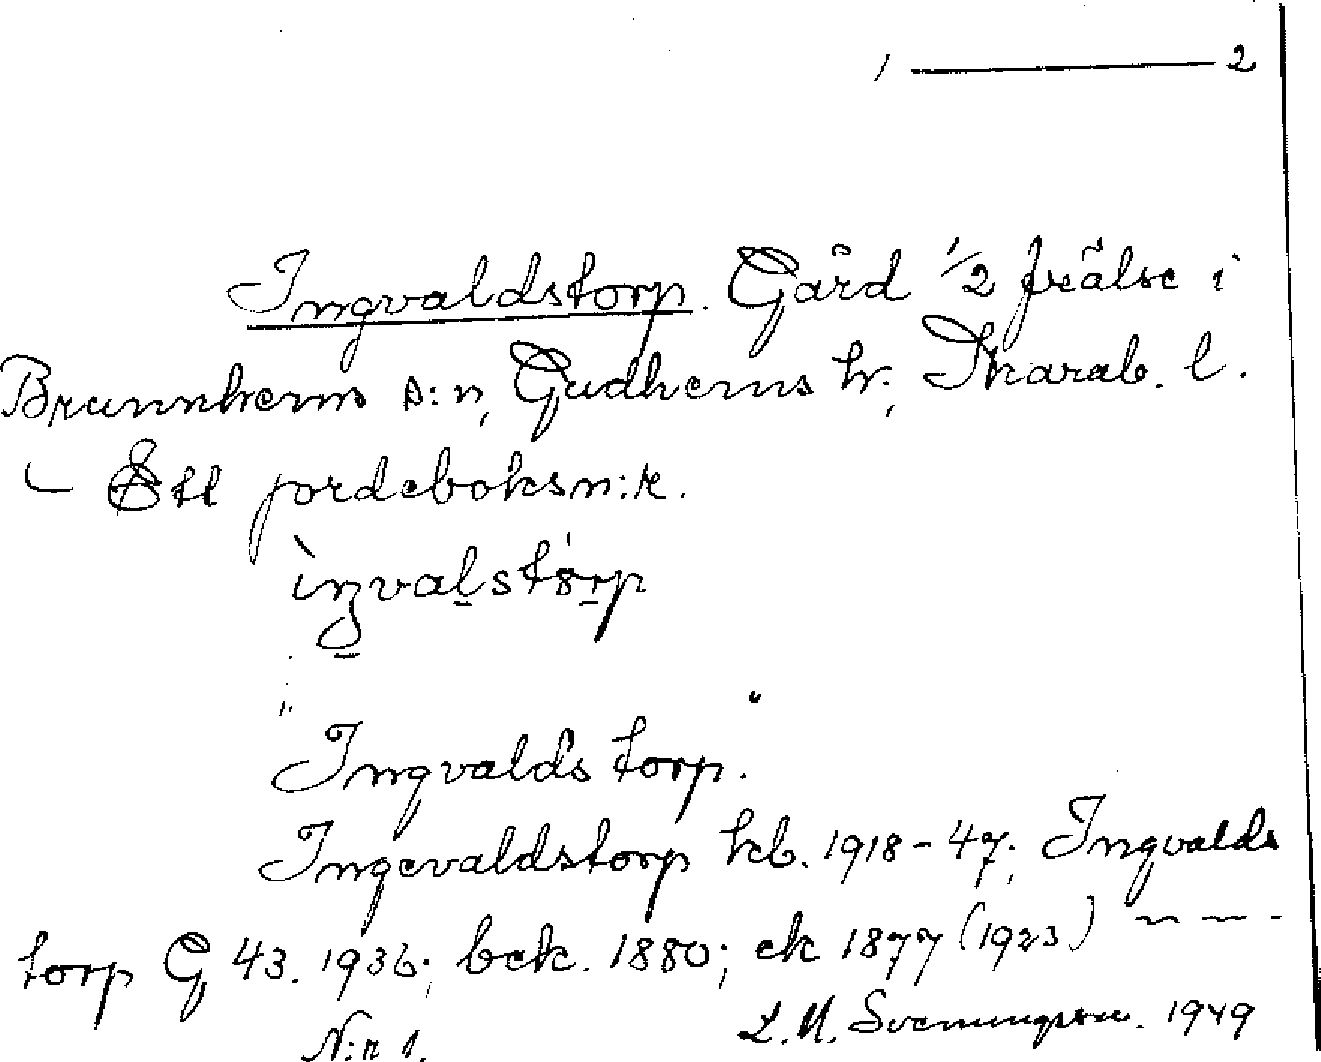 1 ——— 2
Ingvaldstorp. Gård 1/2 frälse i
Brunnhems s:n, Gudhems hr; Skarab. l.
– Ett jordeboksn:r.
ìŋvalstórp
"Ingvalds torp."
Ingevaldstorp kb. 1918-47; Ingvalds
torp G 43. 1936; bek. 1880; ek 1877 (1923) ~ ~ ~ -
N:r 1. L. M. Svenungsson. 1949